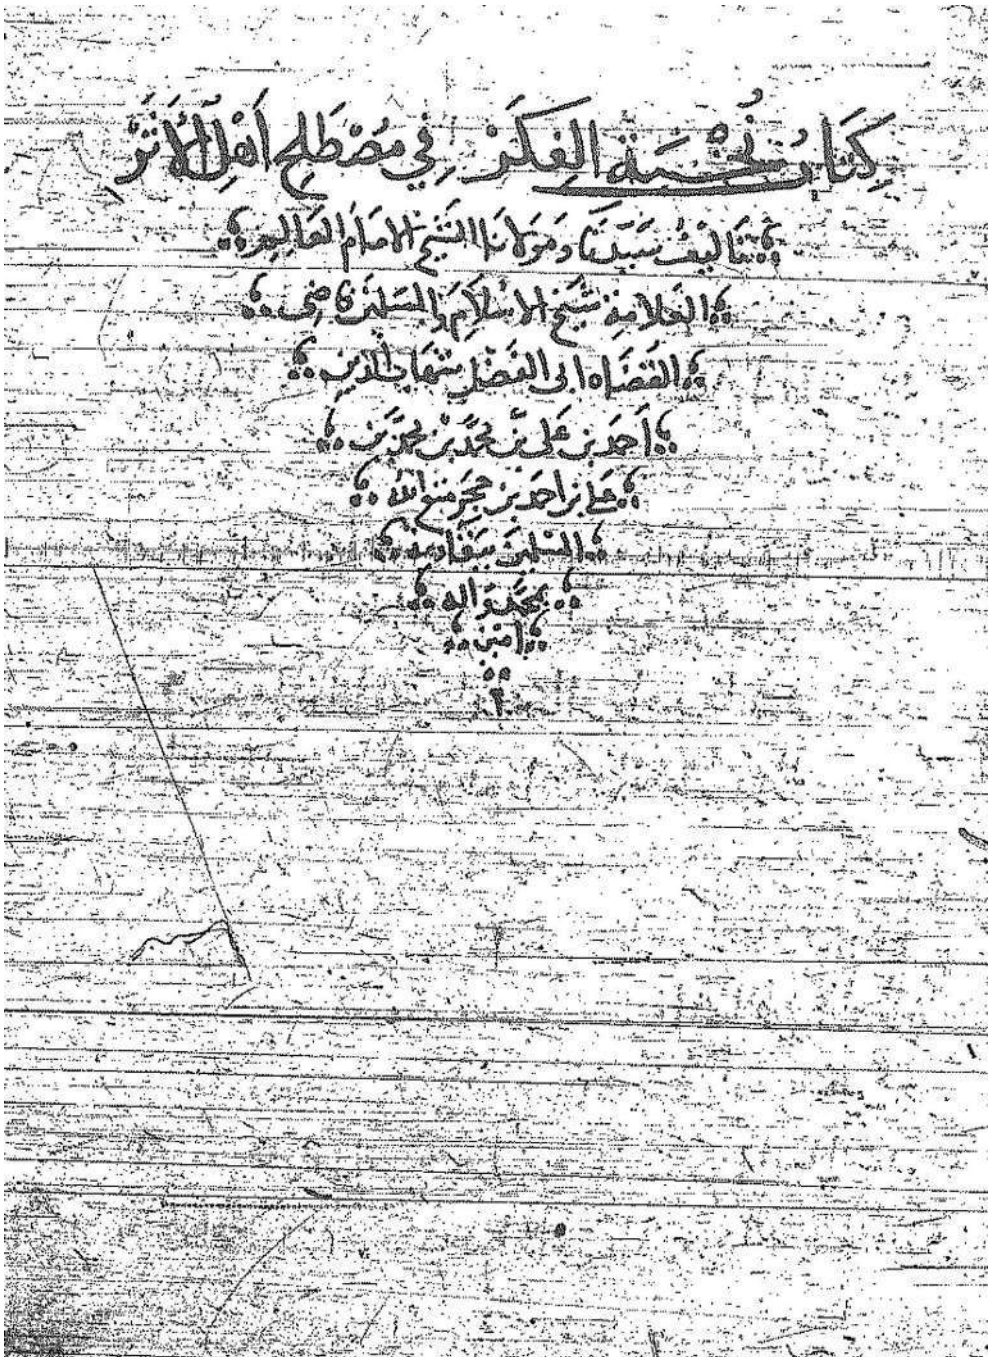 كِتَابُ نُخْبَةِ الفِكَرْ فِي مُصْطَلِحِ اَهْلِ الْأَثَرْ
تَاليف سَيِّدنَا وَمَولَانَا الشَيْخ الامَام العَالِم
العَلامة شَيْخ الاسْلَام والمسلمين قاضى
القضاه ابى الفَضْلِ شهاب الدين
اَحمد بن عَلى بن محمَّد بن محمد بن
على بن احمَد بن حجَر متع الله
المسلمين ببقايه
بمحمد واله
امين
م